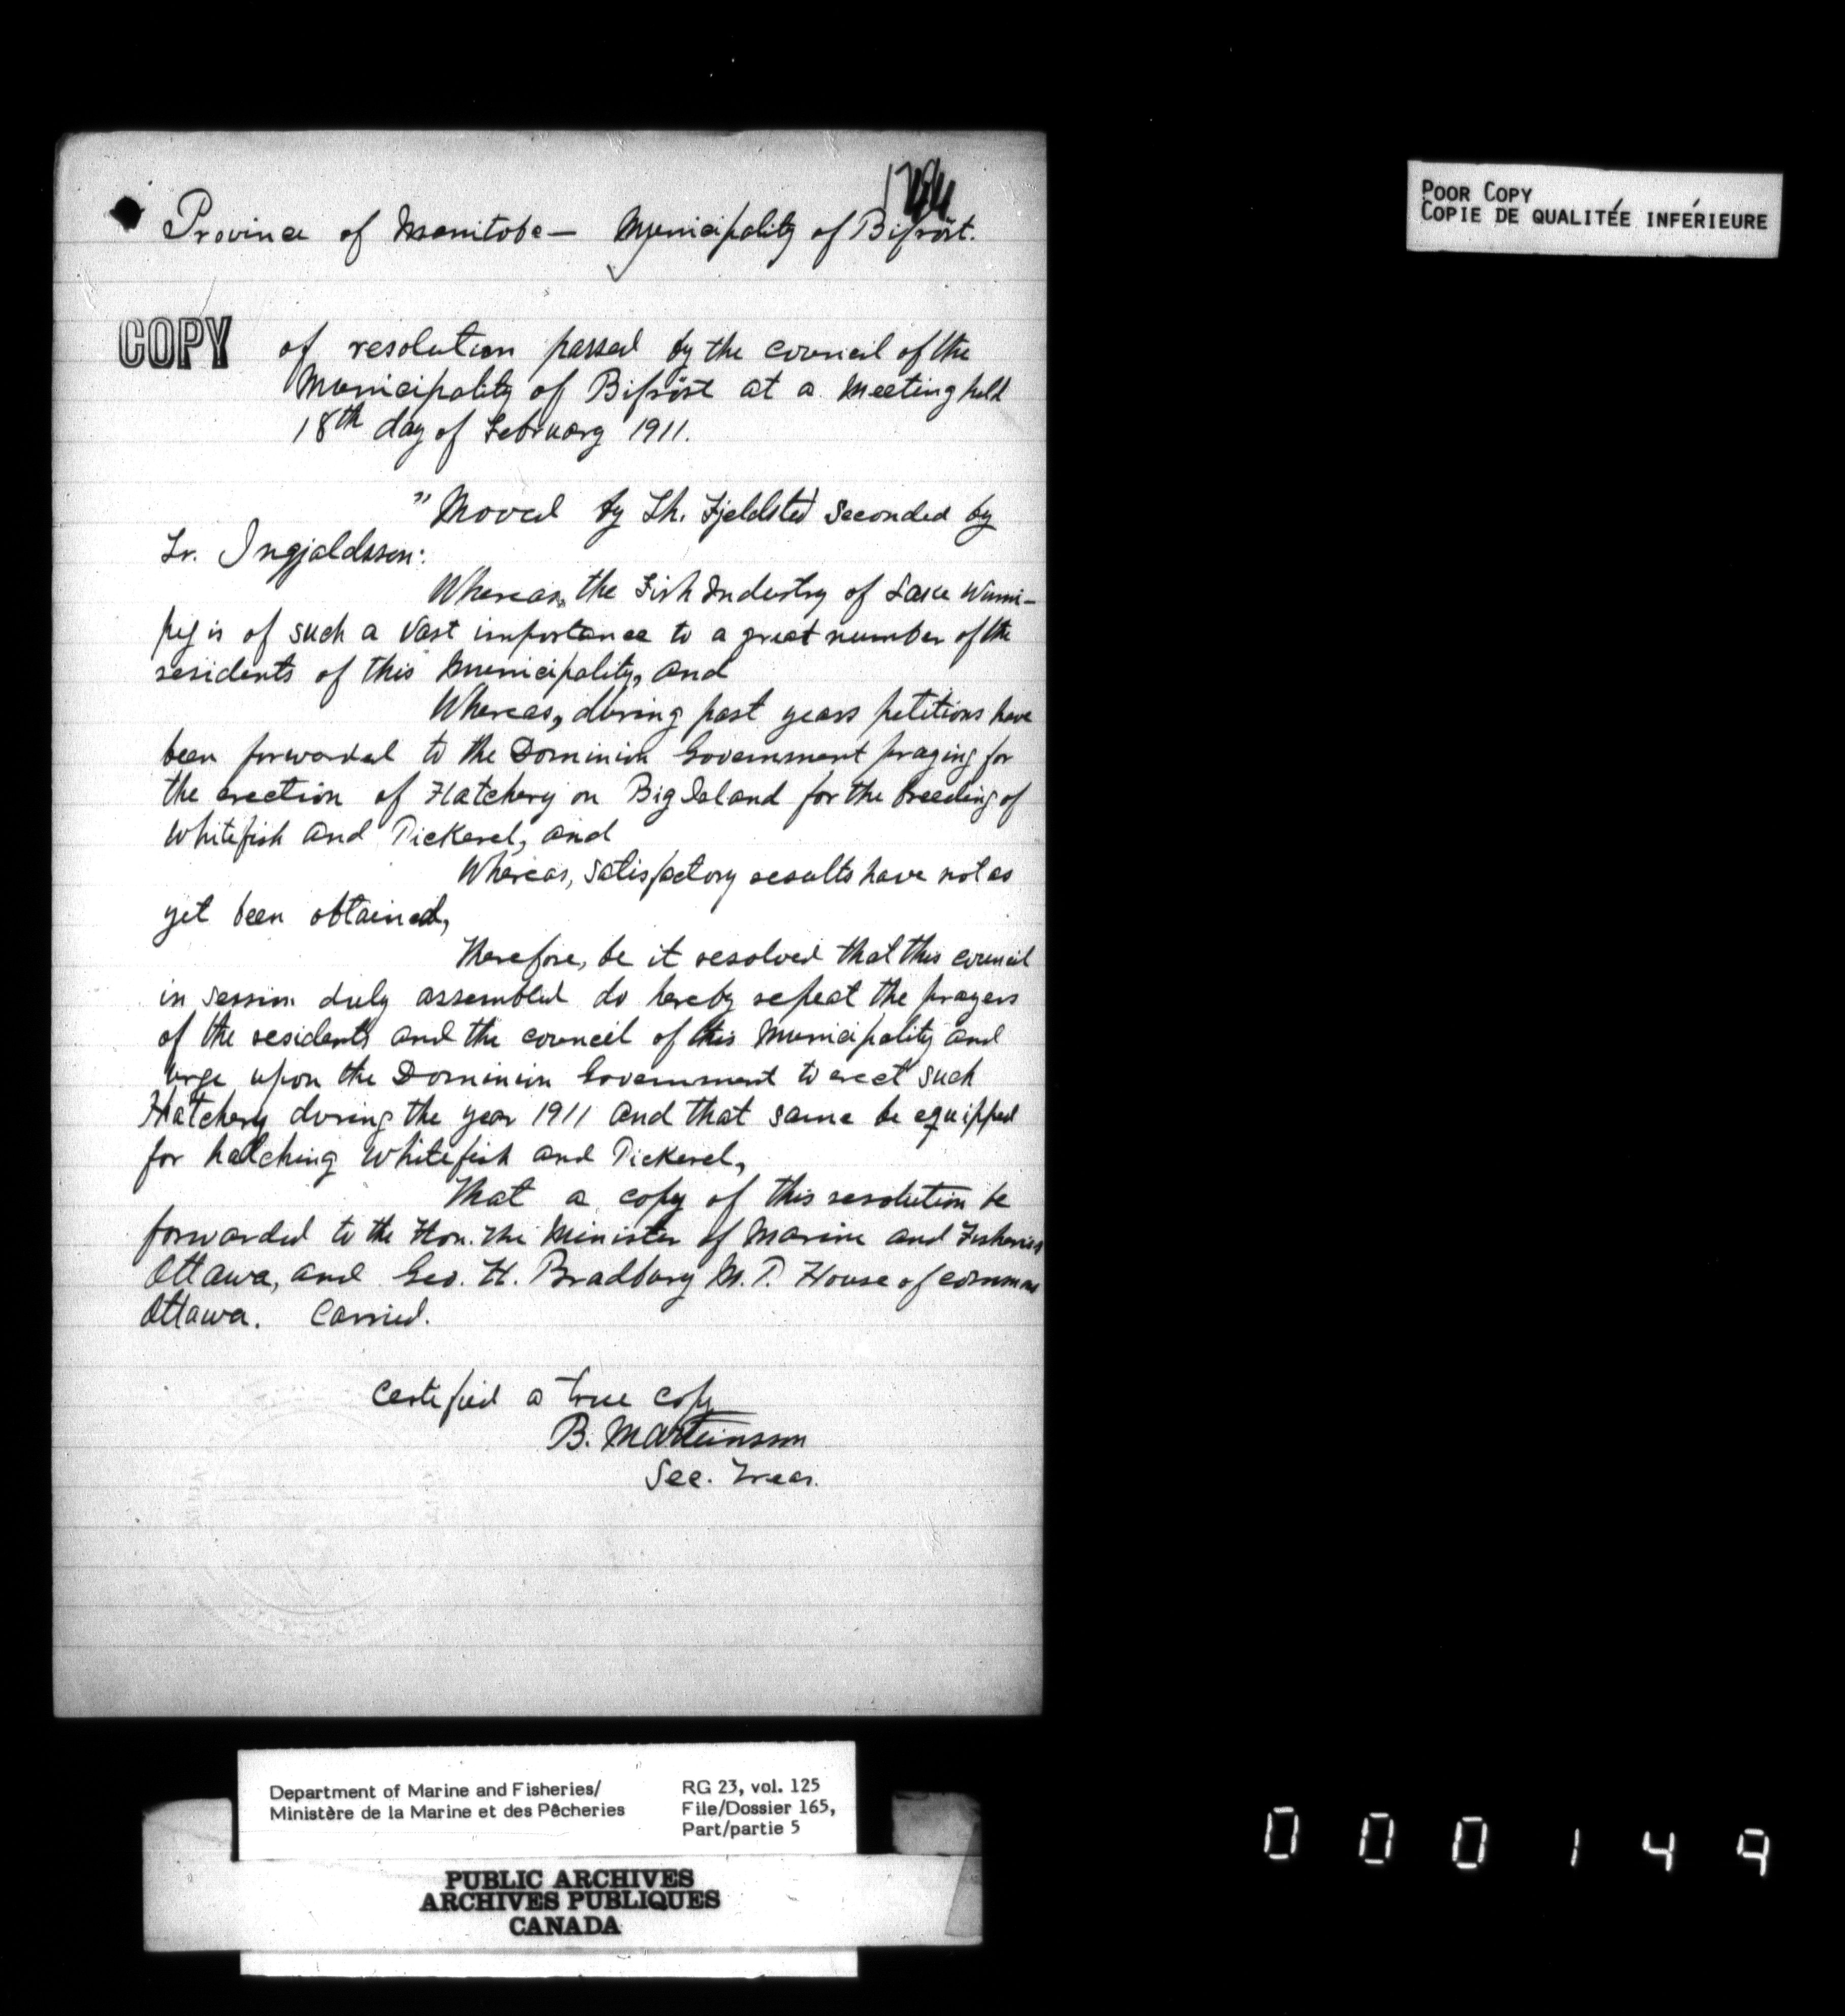 Province of Manitoba — Municipality of Bifröst.
COPY of resolution passed by the council of the
Municipality of Bifröst at a meeting held
18th day of February 1911.
"Moved by Th. Fjeldsted seconded by
Tr. Ingjaldsson:
Whereas, the Fish Industry of Lake Winni-
peg is of such a vast importance to a great number of the
residents of this Municipality, and
Whereas, during past years petitions have
been forwarded to the Dominion Government praying for
the erection of Hatchery on Big Island for the breeding of
Whitefish and Pickerel, and
Whereas, satisfactory results have not as
yet been obtained,
Therefore, be it resolved that this council
in session duly assembled do hereby repeat the prayers
of the residents and the council of this Municipality and
urge upon the Dominion Government to erect such
Hatchery during the year 1911 and that same be equipped
for hatching Whitefish and Pickerel,
That a copy of this resolution be
forwarded to the Hon. the Minister of Marine and Fisheries
Ottawa, and Geo. H. Bradbury M.P. House of commons
Ottawa. Carried.
Certified a true copy
B. Marteinsson
Sec. Treas.
POOR COPY
COPIE DE QUALITÉE INFÉRIEURE
Department of Marine and Fisheries/
Ministère de la Marine et des Pêcheries
RG 23, vol. 125
File/Dossier 165,
Part/partie 5
PUBLIC ARCHIVES
ARCHIVES PUBLIQUES
CANADA
000149